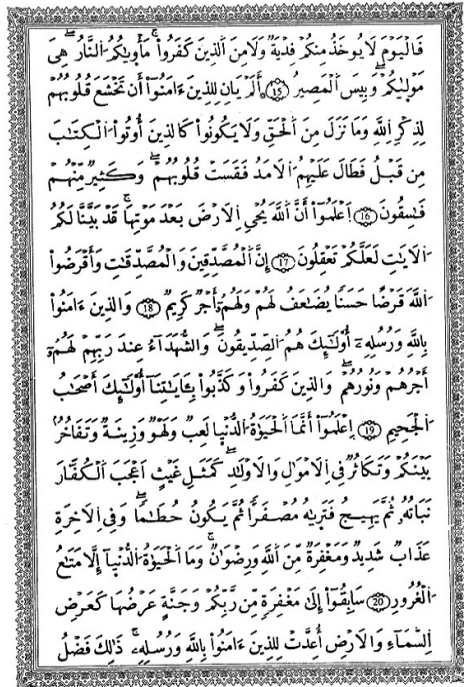 فَالْيَوْمَ لَا يُوخَذُ مِنكُمْ فِدْيَةٌ وَلَا مِنَ اَلذِينَ كَفَرُواْ مَأْوِيٰكُمُ اُلنَّارُ هِيَ
مَوْلِيٰكُمْ وَبِيسَ اَلْمَصِيرُ 15 أَلَمْ يَانِ لِلذِينَ ءَامَنُوٓاْ أَن تَخْشَعَ قُلُوبُهُمْ
لِذِكْرِ اِللَّهِ وَمَا نَزَلَ مِنَ اَلْحَقِّ وَلَا يَكُونُواْ كَالذِينَ أُوتُواْ اُلْكِتَٰبَ
مِن قَبْلُ فَطَالَ عَلَيْهِمُ اُلَامَدُ فَقَسَتْ قُلُوبُهُمْ وَكَثِيرٌ مِّنْهُمْ
فَٰسِقُونَ 16 اِعْلَمُوٓاْ أَنَّ اَللَّهَ يُحْيِ اِلَارْضَ بَعْدَ مَوْتِهَا قَدْ بَيَّنَّا لَكُمُ
اُلَايَٰتِ لَعَلَّكُمْ تَعْقِلُونَ 17 إِنَّ اَلْمُصَّدِّقِينَ وَالْمُصَّدِّقَٰتِ وَأَقْرَضُواْ
اُللَّهَ قَرْضًا حَسَنًا يُضَٰعَفُ لَهُمْ وَلَهُمُۥٓ أَجْرٌ كَرِيمٌ 18 وَالذِينَ ءَامَنُواْ
بِاللَّهِ وَرُسُلِهِۦٓ أُوْلَٰٓئِكَ هُمُ اُلصِّدِّيقُونَ وَالشُّهَدَآءُ عِندَ رَبِّهِمْ لَهُمُۥٓ
أَجْرُهُمْ وَنُورُهُمْ وَالذِينَ كَفَرُواْ وَكَذَّبُواْ بِـَٔايَٰتِنَآ أُوْلَٰٓئِكَ أَصْحَٰبُ
اُلْجَحِيمِ 19 اِعْلَمُوٓاْ أَنَّمَا اَلْحَيَوٰةُ اُلدُّنْيَا لَعِبٌ وَلَهْوٌ وَزِينَةٌ وَتَفَاخُرٌۢ
بَيْنَكُمْ وَتَكَاثُرٌ فِي اِلَامْوَٰلِ وَالَاوْلَٰدِ كَمَثَلِ غَيْثٍ اَعْجَبَ اَلْكُفَّارَ
نَبَاتُهُۥ ثُمَّ يَهِيجُ فَتَر۪يٰهُ مُصْفَرّٗا ثُمَّ يَكُونُ حُطَٰمٗا وَفِي اِلَاخِرَةِ
عَذَابٌ شَدِيدٌ وَمَغْفِرَةٌ مِّنَ اَللَّهِ وَرِضْوَٰنٌ وَمَا اَلْحَيَوٰةُ اُلدُّنْيَآ إِلَّا مَتَٰعُ
اُلْغُرُورِ 20 سَابِقُوٓاْ إِلَىٰ مَغْفِرَةٍ مِّن رَّبِّكُمْ وَجَنَّةٍ عَرْضُهَا كَعَرْضِ
اِلسَّمَآءِ وَالَارْضِ أُعِدَّتْ لِلذِينَ ءَامَنُواْ بِاللَّهِ وَرُسُلِهِۦ ذَٰلِكَ فَضْلُ